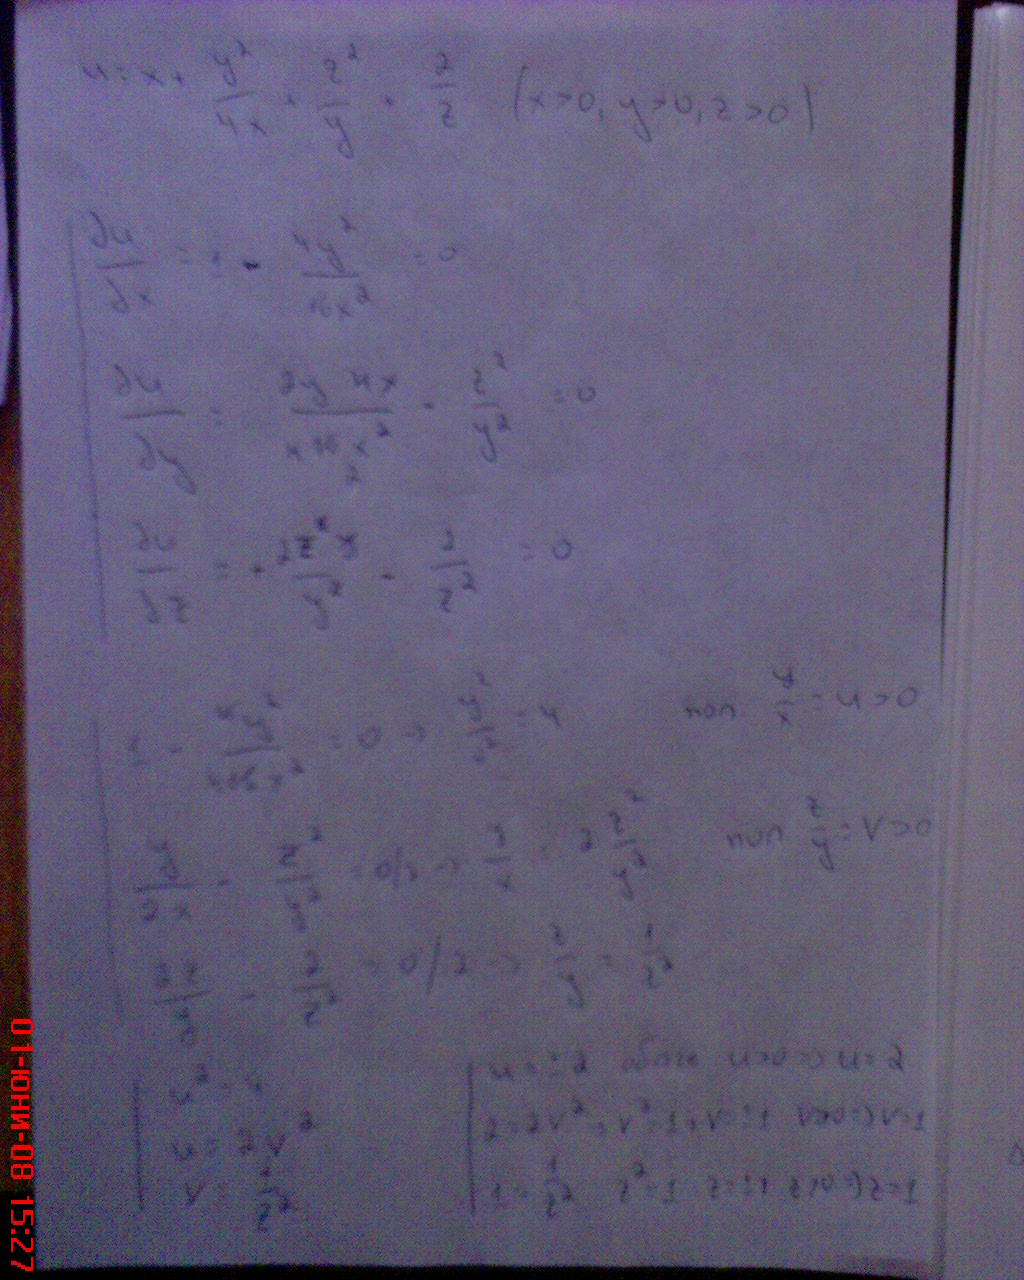 u = x + y²/4x + z²/y + 2/z (x>0, y>0, z>0)
∂u/∂x = 1 - 4y²/16x² = 0
∂u/∂y = 2y 4x/16x² - z²/y² = 0
∂u/∂z = + 2z y/y² - 2/z² = 0
1 - 4y²/16x² = 0 → y²/x² = 4 пол y/x = u>0
y/2x - z²/y² = 0/2 → y/x = 2 z²/y² пол z/y = v>0
2z/y - 2/z² = 0/2 → z/y = 1/z²
u² = 4
u = 2v²
v = 1/z²
u = ±2 обаче u>0 => u=2
2 = 2v², v² = 1, v = ±1 v>0 => v=1
1 = 1/z² z² = 1 z = ±1 z>0 => z=1
01-ЮНИ-08 15:27